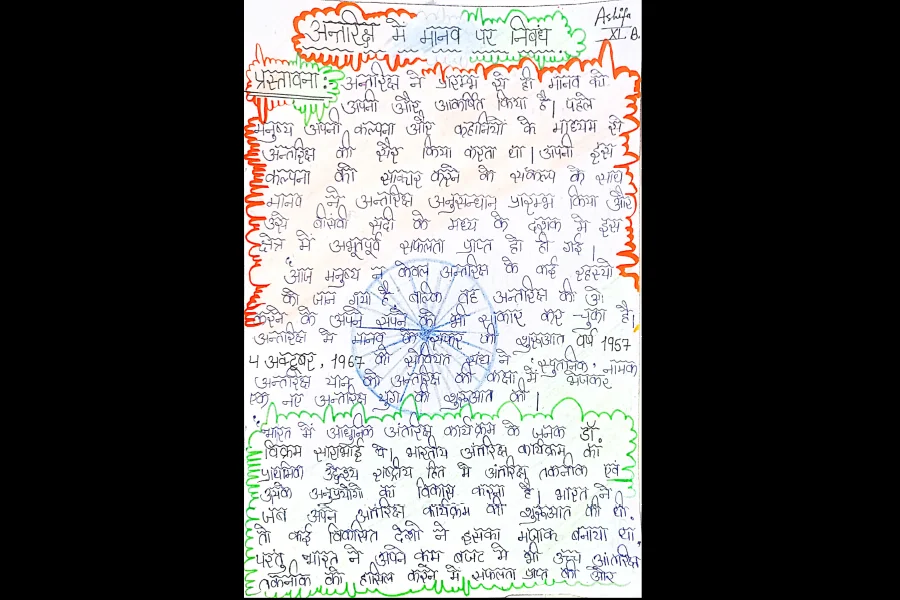 Ashifa
XI. B.
अन्तरिक्ष में मानव पर निबंध
प्रस्तावना :- अन्तरिक्ष ने प्रारम्भ से ही मानव को
अपनी और आकर्षित किया है। पहले
मनुष्य अपनी कल्पना और कहानियों के माध्यम से
अन्तरिक्ष की सैर किया करता था। अपनी इस
कल्पना की साकार करने के संकल्प के साथ
मानव ने अन्तरिक्ष अनुसन्धान प्रारम्भ किया और
उसे बीसवीं सदी के मध्य के दशक मे इस
क्षेत्र में अभूतपूर्व सफलता प्राप्त हो ही गई।
आज मनुष्य न केवल अन्तरिक्ष के कई रहस्यो
को जान गया है, बल्कि वह अन्तरिक्ष की
करने के अपने सपने को भी साकार कर चुका है।
अन्तरिक्ष मे मानव के सफर की शुरुआत वर्ष 1957
4 अक्टूबर, 1967 को सोवियत संघ ने 'स्पुतनिक' नामक
अन्तरिक्ष यान को अन्तरिक्ष की कक्षा में भेजकर
एक नए अन्तरिक्ष युग की शुरुआत की।
भारत में आधुनिक अंतरिक्ष कार्यक्रम के जनक डॉ.
विक्रम साराभाई थे। भारतीय अंतरिक्ष कार्यक्रम का
प्राथमिक उद्देश्य राष्ट्रीय हित मे अंतरिक्ष तकनीक एवं
उसके अनुप्रयोगो का विकास करना है। भारत ने
जब अपने अंतरिक्ष कार्यक्रम की शुरुआत की थी.
तो कई विकसित देशो ने इसका मजाक बनाया था.
परंतु भारत ने अपने कम बजट मे भी उच्च अंतरिक्ष
तकनीक को हासिल करने में सफलता प्राप्त की और